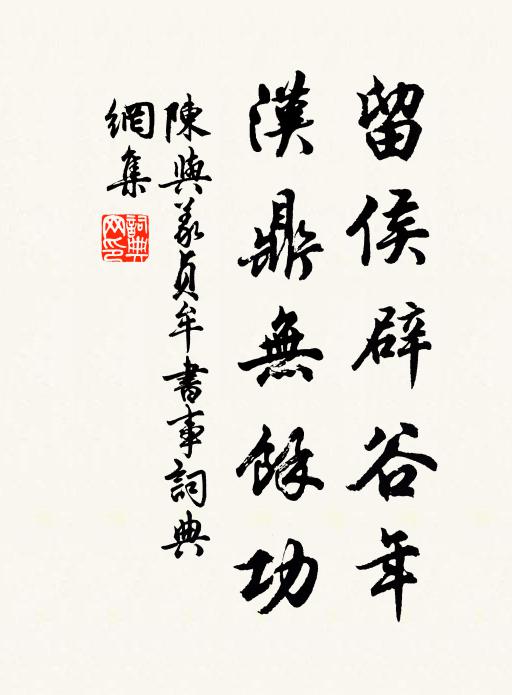 留侯辟谷年
漢鼎無餘功
陳與義貞牟書事詞典
網集
詞典
网印